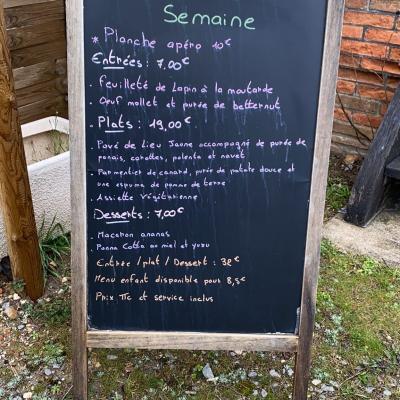 Semaine
* Planche apéro 10€
Entrées : 7,00€
. Feuilleté de Lapin à la moutarde
. Oeuf mollet et purée de butternut
. Plats : 19,00€
. Pavé de Lieu Jaune accompagné de purée de
panais, carottes, polenta et navet
. Parmentier de canard, purée de patate douce et
une espuma de pomme de terre
. Assiette Végétarienne
Desserts : 7,00€
. Macaron ananas
. Panna Cotta au miel et yuzu
Entrée / plat / Dessert : 32€
Menu enfant disponible pour 8,5€
Prix TTc et service inclus